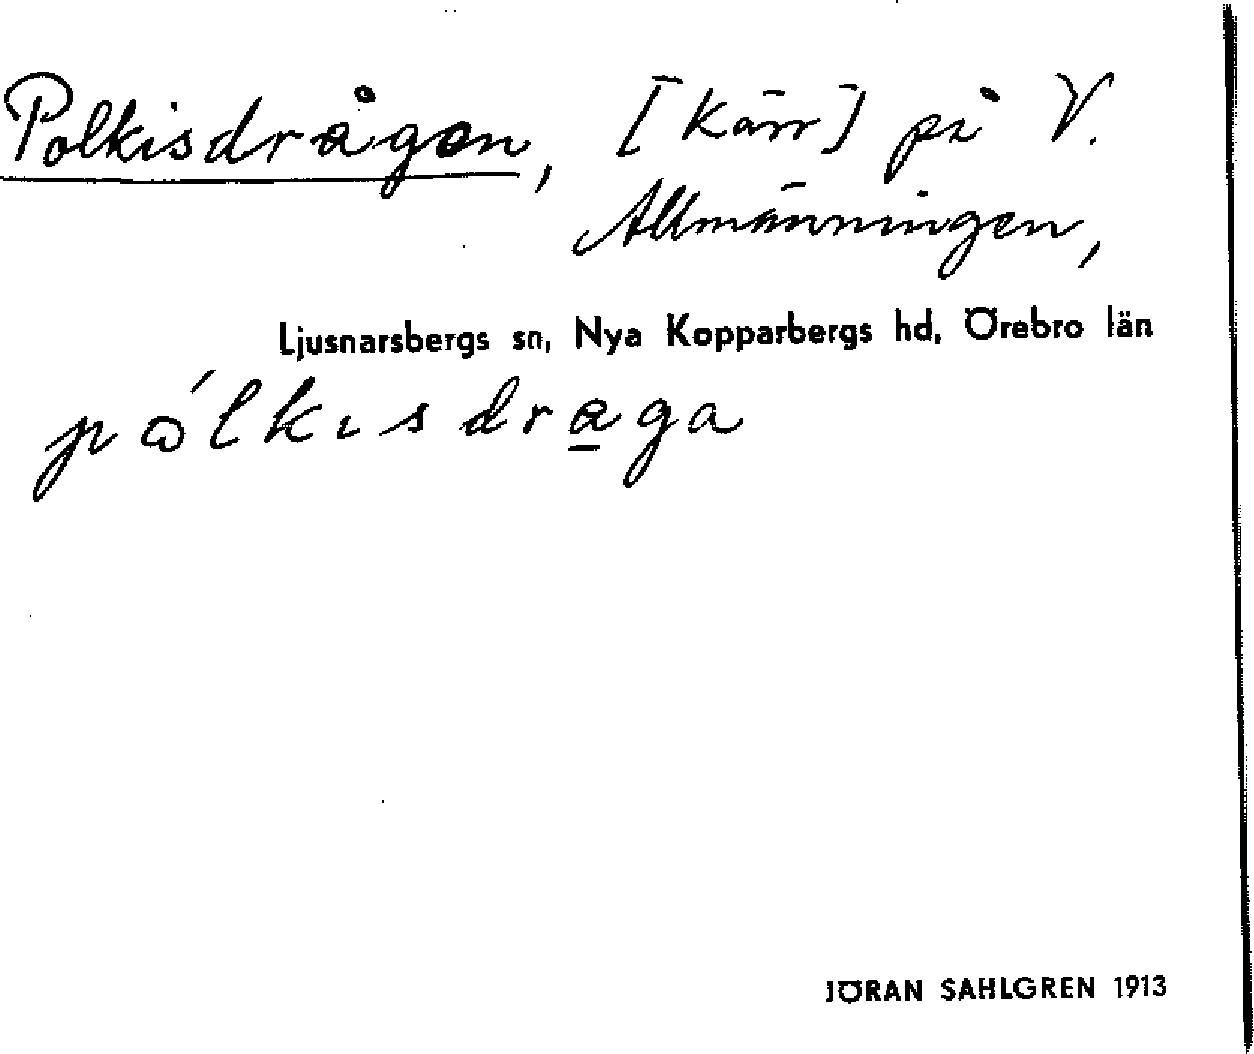 Polkisdrågen, [Kärr] på V.
Allmänningen,
Ljusnarsbergs sn, Nya Kopparbergs hd, Örebro län
pώlkısdra̲ga
JÖRAN SAHLGREN 1913